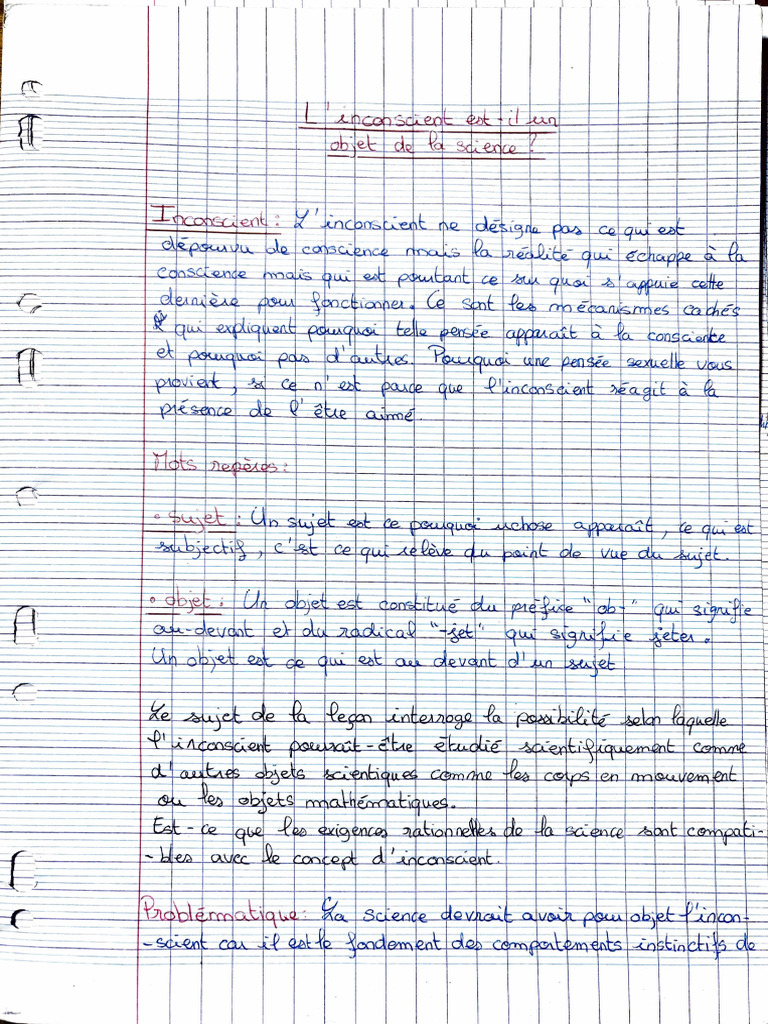 L'inconscient est-il un
objet de la science ?
Inconscient : L'inconscient ne désigne pas ce qui est
dépourvu de conscience mais la réalité qui échappe à la
conscience mais qui est pourtant ce sur quoi s'appuie cette
dernière pour fonctionner. Ce sont les mécanismes cachés
qui expliquent pourquoi telle pensée apparaît à la conscience
et pourquoi pas d'autres. Pourquoi une pensée sexuelle vous
provient, si ce n'est parce que l'inconscient réagit à la
présence de l'être aimé.
Mots repères :
• sujet : Un sujet est ce pourquoi uchose apparaît, ce qui est
subjectif, c'est ce qui relève du point de vue du sujet.
• objet : Un objet est constitué du préfixe "ob-" qui signifie
au-devant et du radical "-jet" qui signifie jeter.
Un objet est ce qui est au devant d'un sujet
Le sujet de la leçon interroge la possibilité selon laquelle
l'inconscient pourrait-être étudié scientifiquement comme
d'autres objets scientiques comme les corps en mouvement
ou les objets mathématiques.
Est-ce que les exigences rationnelles de la science sont compati-
-bles avec le concept d'inconscient.
Problématique : La science devrait avoir pour objet l'incon-
-scient car il est le fondement des comportements instinctifs de